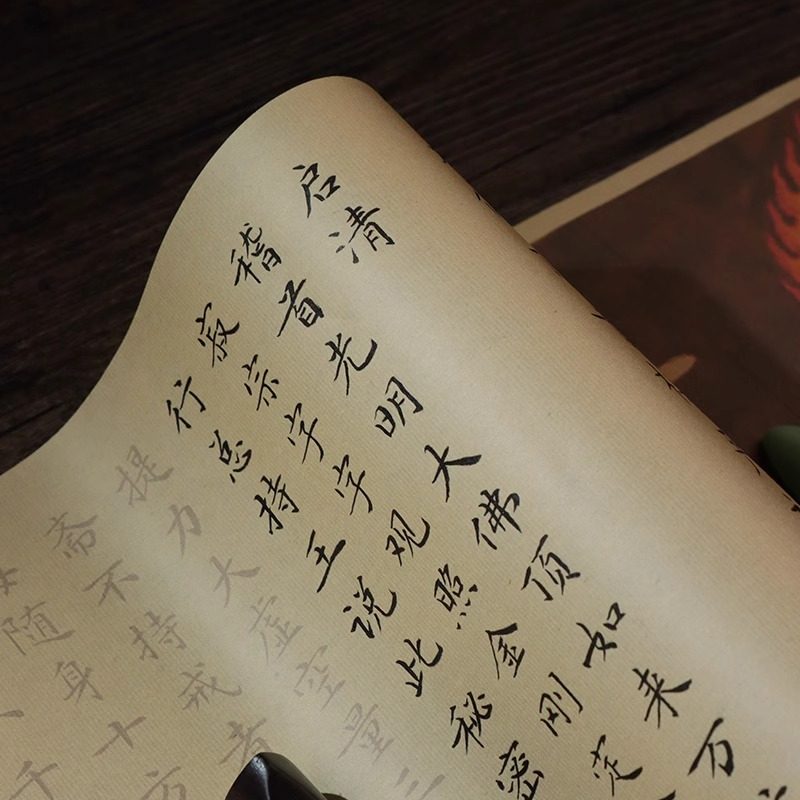 启清
稽首光明大佛顶如来万
寂宗字字观照金刚定
行总持王说此秘密
提力大虚空量三
斋不持戒者
随身十方
千